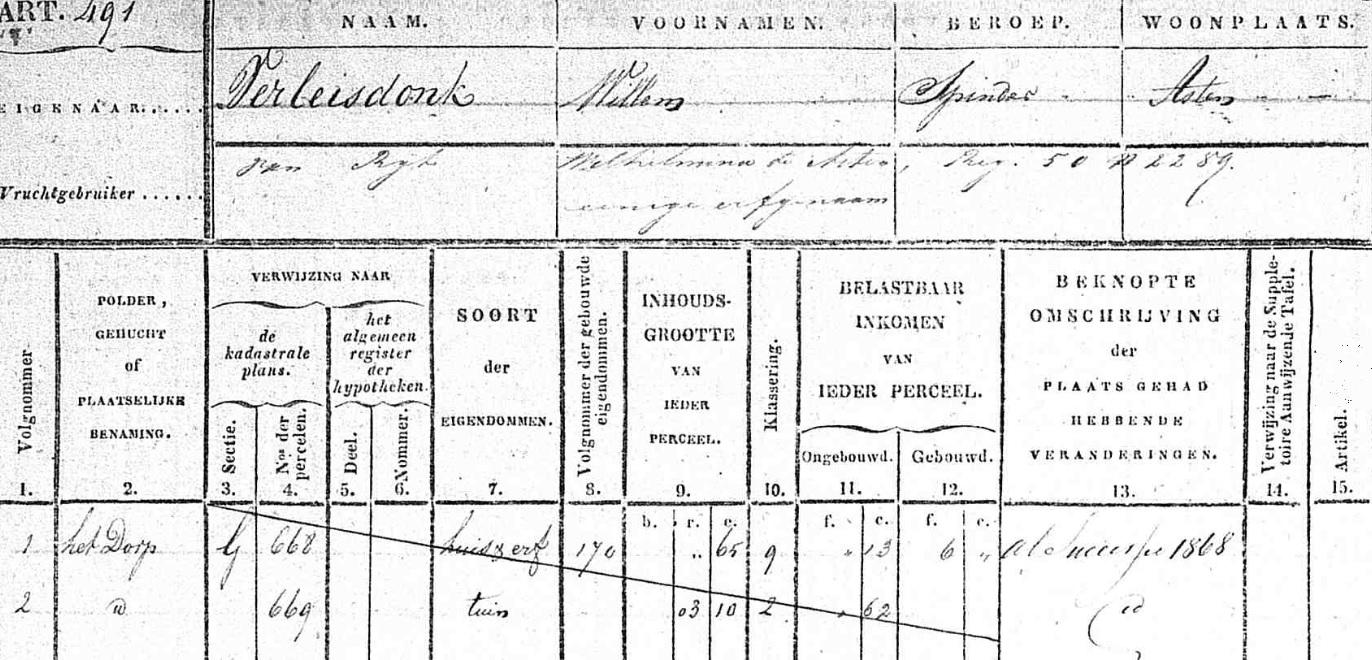 ART. 491
NAAM. VOORNAMEN. BEROEP. WOONPLAATS.
EIGENAAR..... Verleisdonk Willem Spinder Asten
Vruchtgebruiker ...... van Wilhelmina te Asten, Reg. 50 n 2289.
eenige erfgenaam
Volgnommer
1.
POLDER,
GEHUCHT
of
PLAATSELIJKE
BENAMING.
2.
VERWIJZING NAAR
de
kadastrale
plans.
Sectie.
3.
Nos der
percelen.
4.
het
algemeen
register
der
hypotheken.
Deel.
5.
Nommer.
6.
SOORT
der
EIGENDOMMEN.
7.
Volgnommer der gebouwde
eigendommen.
8.
INHOUDS-
GROOTTE
VAN
IEDER
PERCEEL.
9.
Klassering.
10.
BELASTBAAR
INKOMEN
VAN
IEDER PERCEEL.
Ongebouwd.
11.
Gebouwd.
12.
BEKNOPTE
OMSCHRIJVING
der
PLAATS GEHAD
HEBBENDE
VERANDERINGEN.
13.
Verwijzing naar de Supple-
toire Aanwijzende Tafel.
14.
Artikel.
15.
b. r. e. f. c. f. c.
1 het Dorp G 668 huis erf 170 „ 65 9 „ 13 6 „ 1868
2 id 669 tuin 03 10 2 „ 62 id